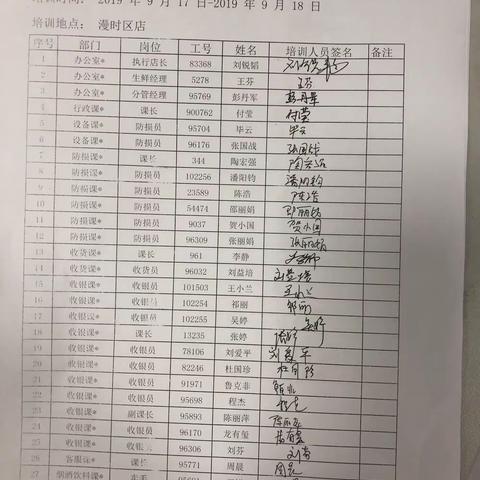 2019 年 9 月 17 日-2019 年 9 月 18 日
培训地点: 漫时区店
序号 部门 岗位 工号 姓名 培训人员签名 备注
1 办公室* 执行店长 83368 刘锐韬
2 办公室* 生鲜经理 5278 王芬 王芬
3 办公室* 分管经理 95769 彭丹军 彭丹军
4 行政课* 课长 900762 付莹 付莹
5 设备课* 防损员 95704 毕云 毕云
6 设备课* 防损员 96176 张国战 张国战
7 防损课* 课长 344 陶宏强 陶宏强
8 防损课* 防损员 102256 潘阳钧 潘阳钧
9 防损课* 防损员 23589 陈浩 陈浩
10 防损课* 防损员 54474 邵丽娟 邵丽娟
11 防损课* 防损员 9037 贺小国 贺小国
12 防损课* 防损员 96309 张丽娟 张丽娟
13 收货课* 课长 961 李静
14 收货课* 收货员 96032 刘益培 刘益培
15 收银课* 收银员 101503 王小兰
16 收银课* 收银员 102254 祁丽 祁丽
17 收银课* 收银员 102255 吴婷 吴婷
18 收银课* 课长 13235 张婷
19 收银课* 收银员 78106 刘爱平 刘爱平
20 收银课* 收银员 82246 杜国珍 杜国珍
21 收银课* 收银员 91971 鲁克非
22 收银课* 收银员 95698 程杰 程杰
23 收银课* 副课长 95893 陈丽萍 陈丽萍
24 收银课* 收银员 96170 龙有玺
25 收银课* 收银员 96306 刘芬 刘芬
26 客服课* 课长 95771 周晨 周晨
27 烟酒饮料课*